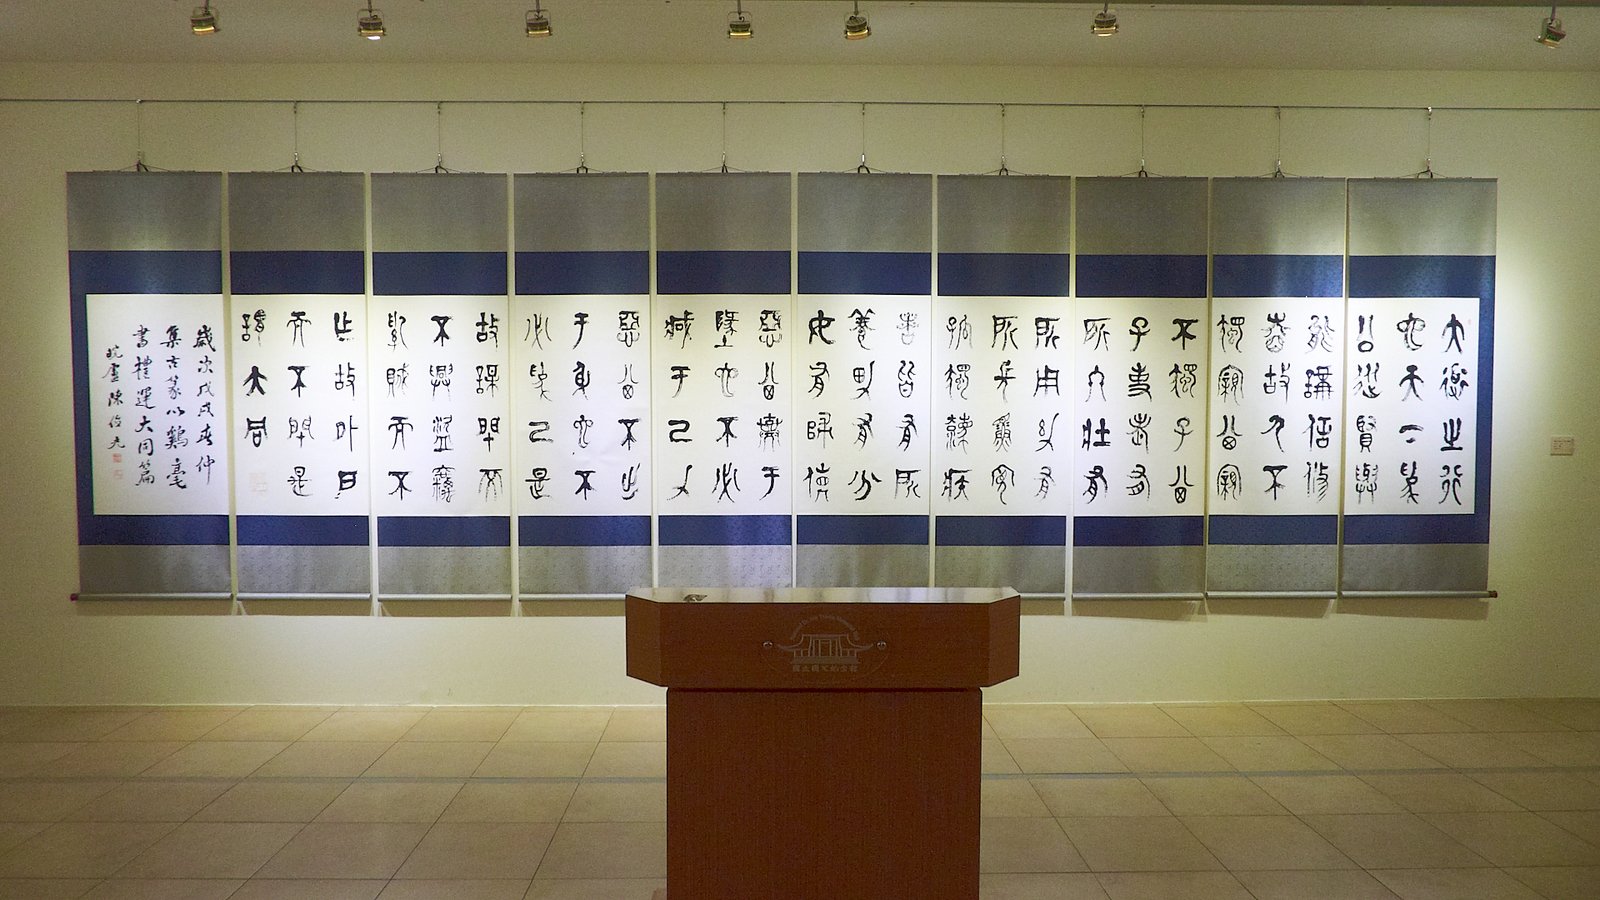 大道之行
也天下為
公選賢與
能講信修
睦故人不
獨親其親
不獨子其
子使老有
所終壯有
所用幼有
所長矜寡
孤獨廢疾
者皆有所
養男有分
女有歸貨
惡其棄于
地也不必
藏于己力
惡其不出
于身也不
必為己是
故謀閉而
不興盜竊
亂賊而不
作故外戶
而不閉是
謂大同
歲次戊戌春仲
集古篆以鷄毫
書禮運大同篇
皖廬陳俊光
國立國父紀念館